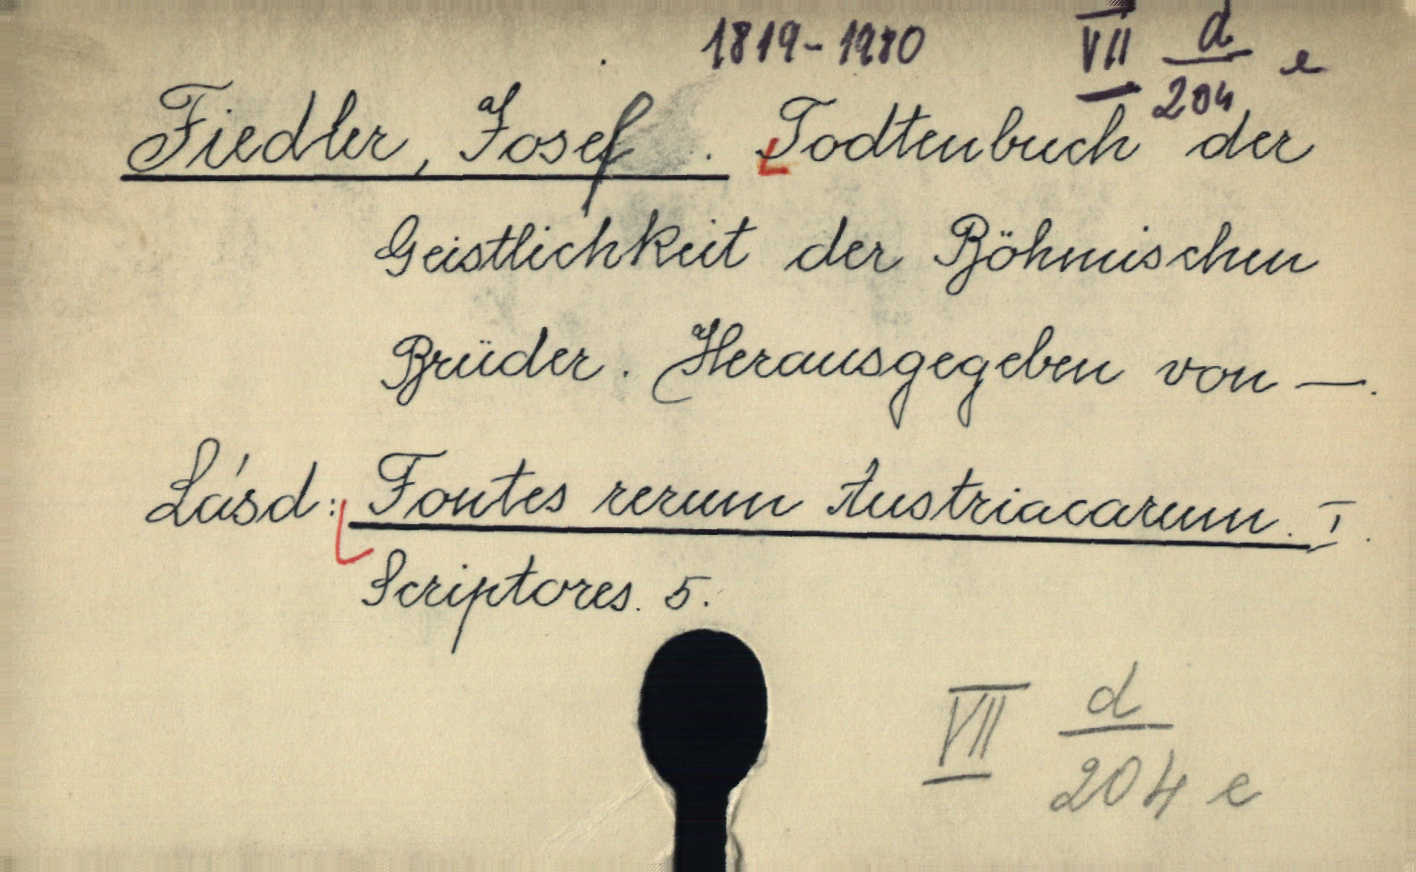 1819-1980 VII d/204 e
Fiedler, Josef. Todtenbuch der
Geistlichkeit der Böhmischen
Brüder. Herausgegeben von —.
Lásd: Fontes rerum Austriacarum. I.
Scriptores. 5.
VII d/204 e